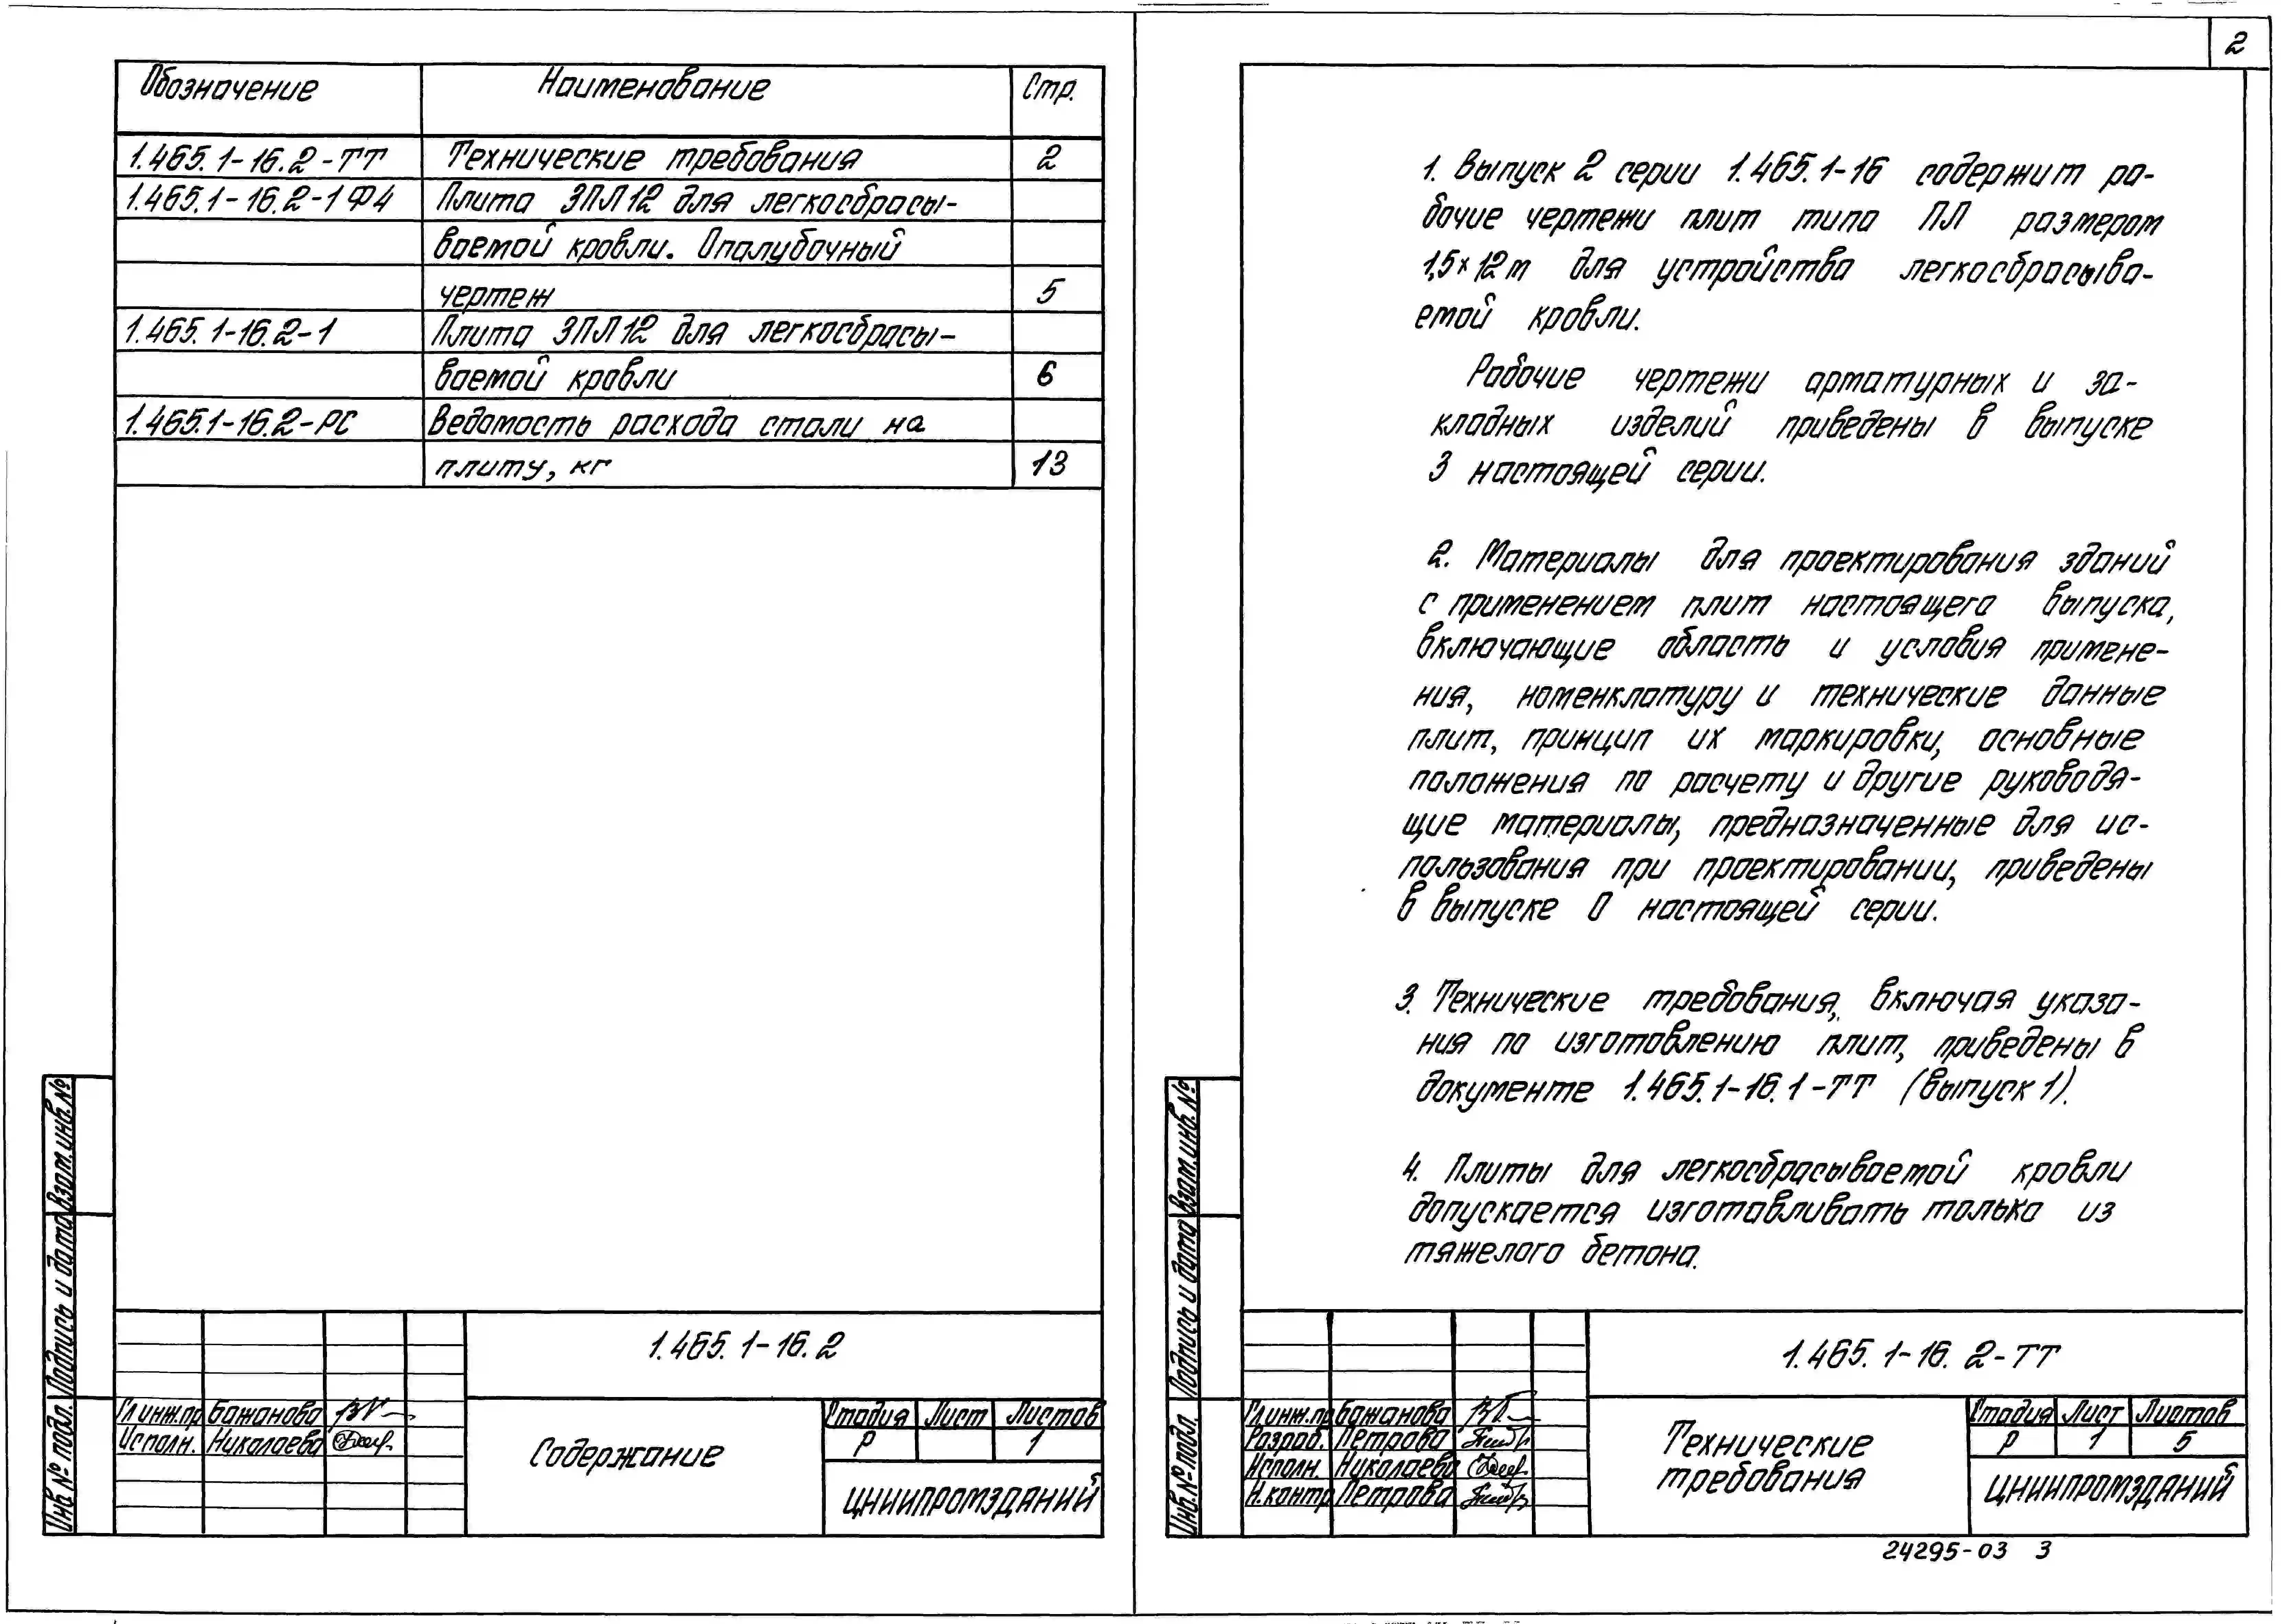 Обозначение Наименование Стр.
1.465.1-16.2-ТТ Технические требования 2
1.465.1-16.2-1Ф4 Плита 3ПЛ12 для легкосбрасы-
ваемой кровли. Опалубочный
чертеж 5
1.465.1-16.2-1 Плита 3ПЛ12 для легкосбрасы-
ваемой кровли 6
1.465.1-16.2-РС Ведомость расхода стали на
плиту, кг 13
Взам.инв.№
Подпись и дата
Инв.№ подл.
1.465.1-16.2
Гл.инж.пр Бажанова
Исполн. Николаева
Содержание
Стадия Лист Листов
Р 1
ЦНИИПРОМЗДАНИЙ
2
1. Выпуск 2 серии 1.465.1-16 содержит ра-
бочие чертежи плит типа ПЛ размером
1,5×12м для устройства легкосбрасыва-
емой кровли.
Рабочие чертежи арматурных и за-
кладных изделий приведены в выпуске
3 настоящей серии.
2. Материалы для проектирования зданий
с применением плит настоящего выпуска,
включающие область и условия примене-
ния, номенклатуру и технические данные
плит, принцип их маркировки, основные
положения по расчету и другие руководя-
щие материалы, предназначенные для ис-
пользования при проектировании, приведены
в выпуске 0 настоящей серии.
3. Технические требования, включая указа-
ния по изготовлению плит, приведены в
документе 1.465.1-16.1-ТТ (выпуск 1).
4. Плиты для легкосбрасываемой кровли
допускается изготавливать только из
тяжелого бетона.
Взам.инв.№
Подпись и дата
Инв.№ подл.
1.465.1-16.2-ТТ
Гл.инж.пр Бажанова
Разраб. Петрова
Исполн. Николаева
Н.контр Петрова
Технические
требования
Стадия Лист Листов
Р 1 5
ЦНИИПРОМЗДАНИЙ
24295-03 3